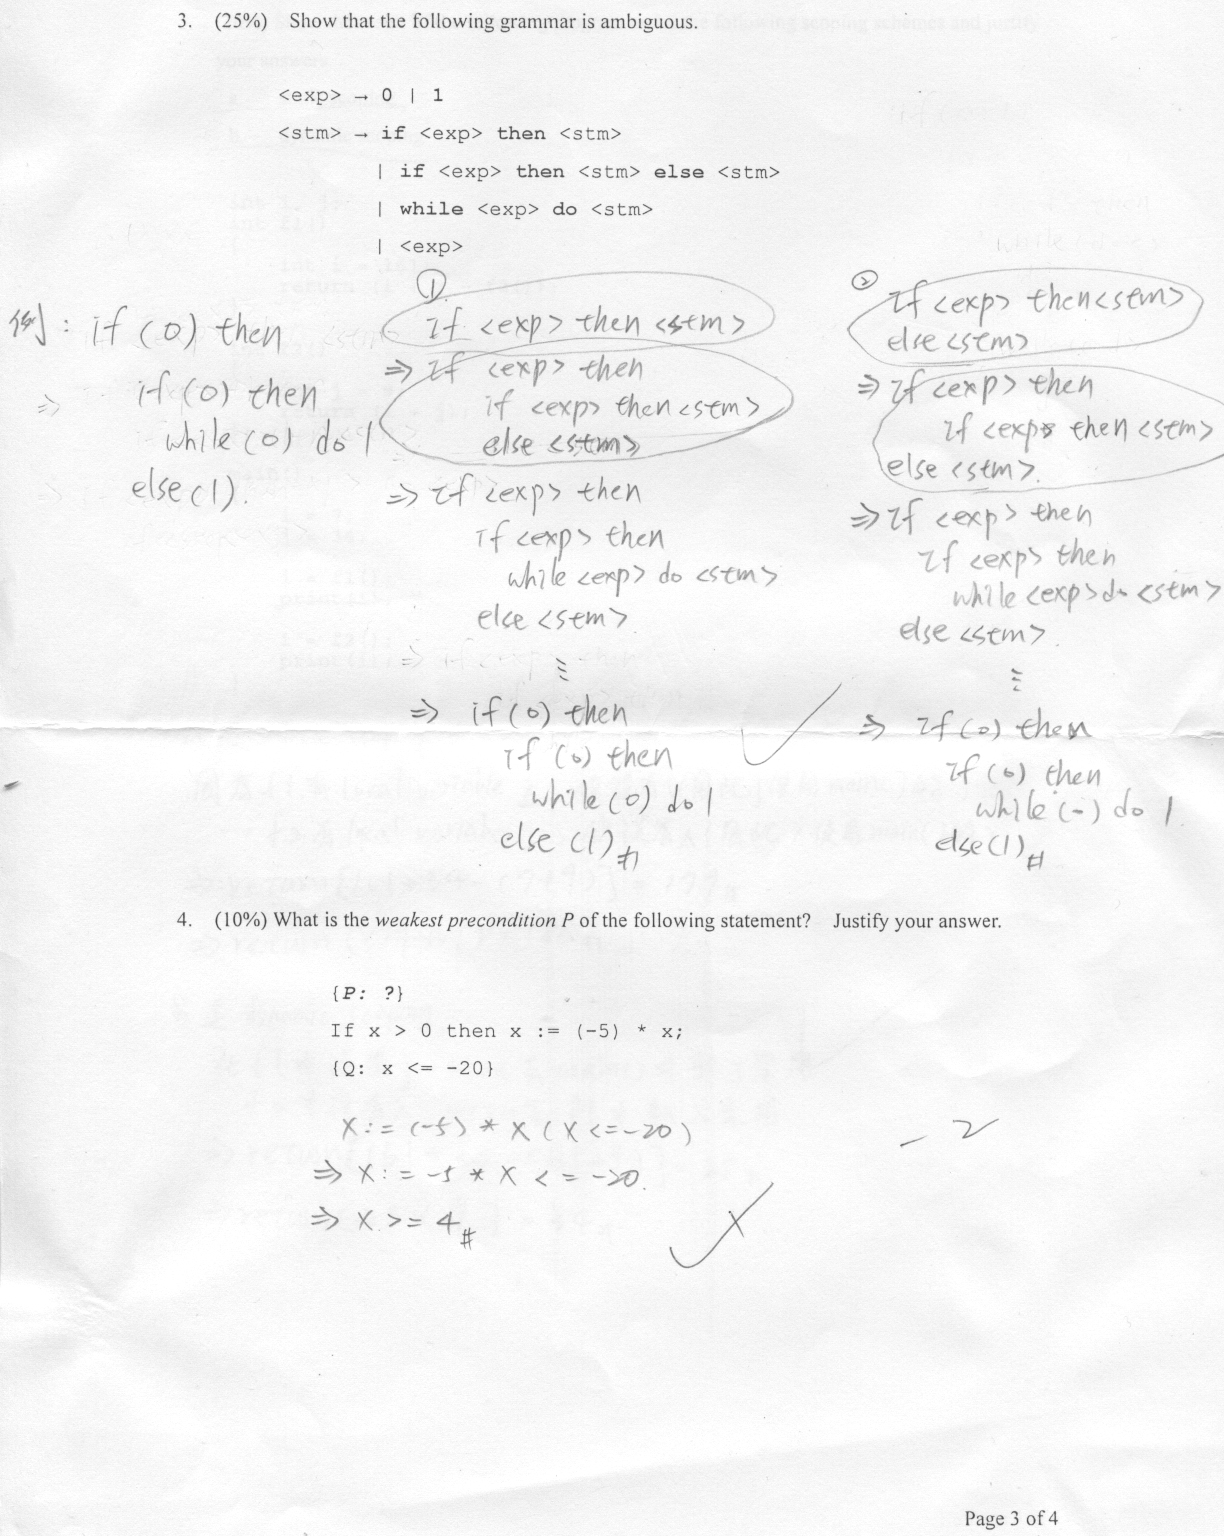 3. (25%) Show that the following grammar is ambiguous.
<exp> → 0 | 1
<stm> → if <exp> then <stm>
| if <exp> then <stm> else <stm>
| while <exp> do <stm>
| <exp>
例: if (0) then
if (0) then
while (0) do 1
else (1).
①
if <exp> then <stm>
⇒ if <exp> then
if <exp> then <stm>
else <stm>
⇒ if <exp> then
if <exp> then
while <exp> do <stm>
else <stm>
⇒ if (0) then
if (0) then
while (0) do 1
else (1) #
②
if <exp> then <stm>
else <stm>
⇒ if <exp> then
if <exp> then <stm>
else <stm>.
⇒ if <exp> then
if <exp> then
while <exp> do <stm>
else <stm>.
⇒ if (0) then
if (0) then
while (0) do 1.
else (1) #
4. (10%) What is the weakest precondition P of the following statement? Justify your answer.
{P: ?}
If x > 0 then x := (-5) * x;
{Q: x <= -20}
X := (-5) * X (X <= -20)
⇒ X := -5 * X <= -20.
⇒ X >= 4 #
-2
Page 3 of 4